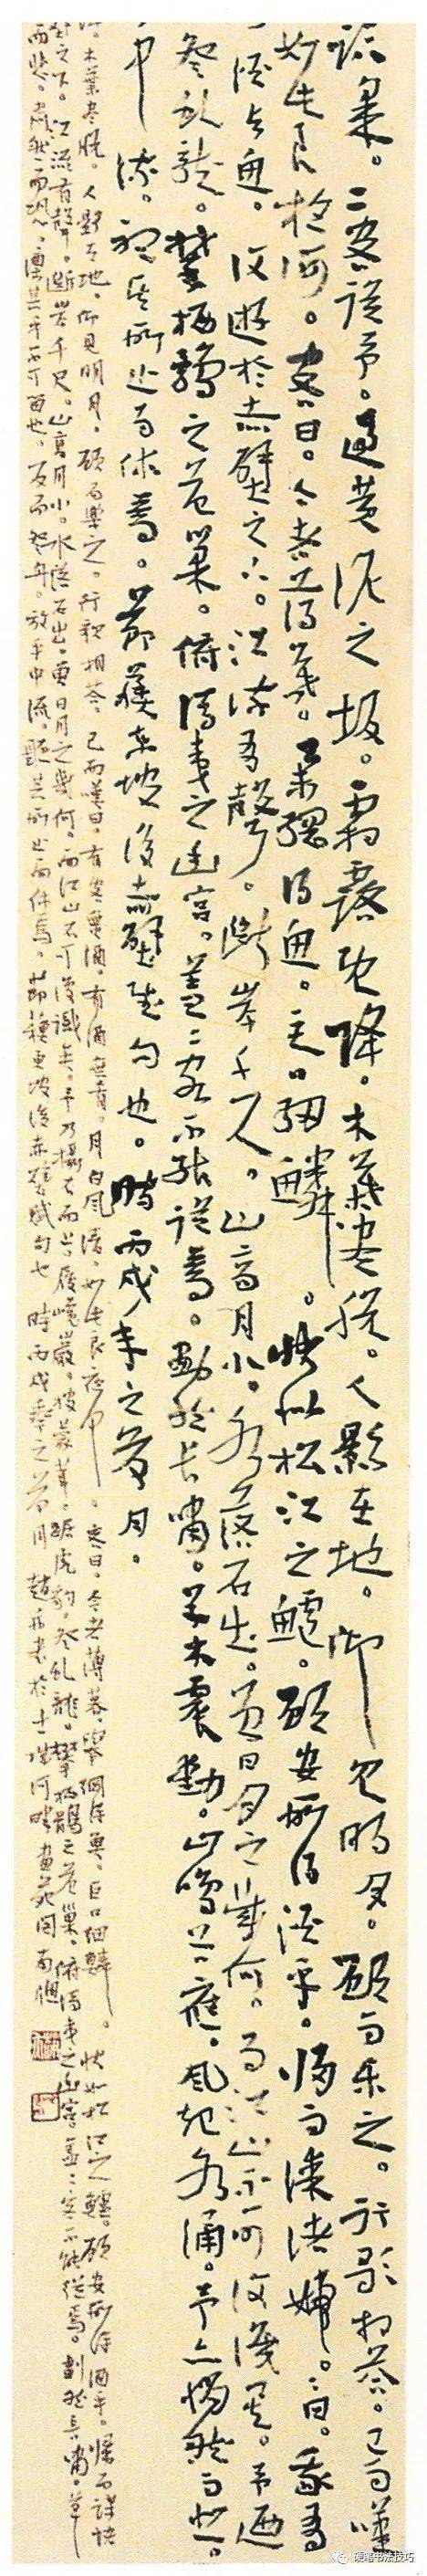 臨皋。二客從予。過黃泥之坂。霜露既降。木葉盡脫。人影在地。仰見明月。顧而樂之。行歌相答。已而嘆
如此良夜何。客曰。今者薄暮。舉網得魚。巨口細鱗。狀似松江之鱸。顧安所得酒乎。歸而謀諸婦。〻曰。我有
酒與魚。復遊於赤壁之下。江流有聲。斷岸千尺。山高月小。水落石出。曾日月之幾何。而江山不可復識矣。予迺
登虬龍。攀栖鶻之危巢。俯馮夷之幽宮。蓋二客不能從焉。劃然長嘯。草木震動。山鳴谷應。風起水涌。予亦悄然而悲。
中流。聽其所止而休焉。節錄東坡後赤壁賦句也。時丙戌年之菊月。
木葉盡脫。人影在地。仰見明月。顧而樂之。行歌相答。已而嘆曰。有客無酒。有酒無肴。月白風清。如此良夜何。客曰。今者薄暮。舉網得魚。巨口細鱗。狀如松江之鱸。顧安所得酒乎。歸而謀諸
壁之下。江流有聲。斷岸千尺。山高月小。水落石出。曾日月之幾何。而江山不可復識矣。予乃攝衣而上。履巉巖。披蒙茸。踞虎豹。登虬龍。攀栖鶻之危巢。俯馮夷之幽宮。蓋二客不能從焉。劃然長嘯。草
而悲。肅然而恐。凜其乎不可留也。反而登舟。放乎中流。聽其所止而休焉。節錄東坡後赤壁賦句也。時丙戌季之菊月趙書於河畔畫苑閣南窗
硬笔书法技巧